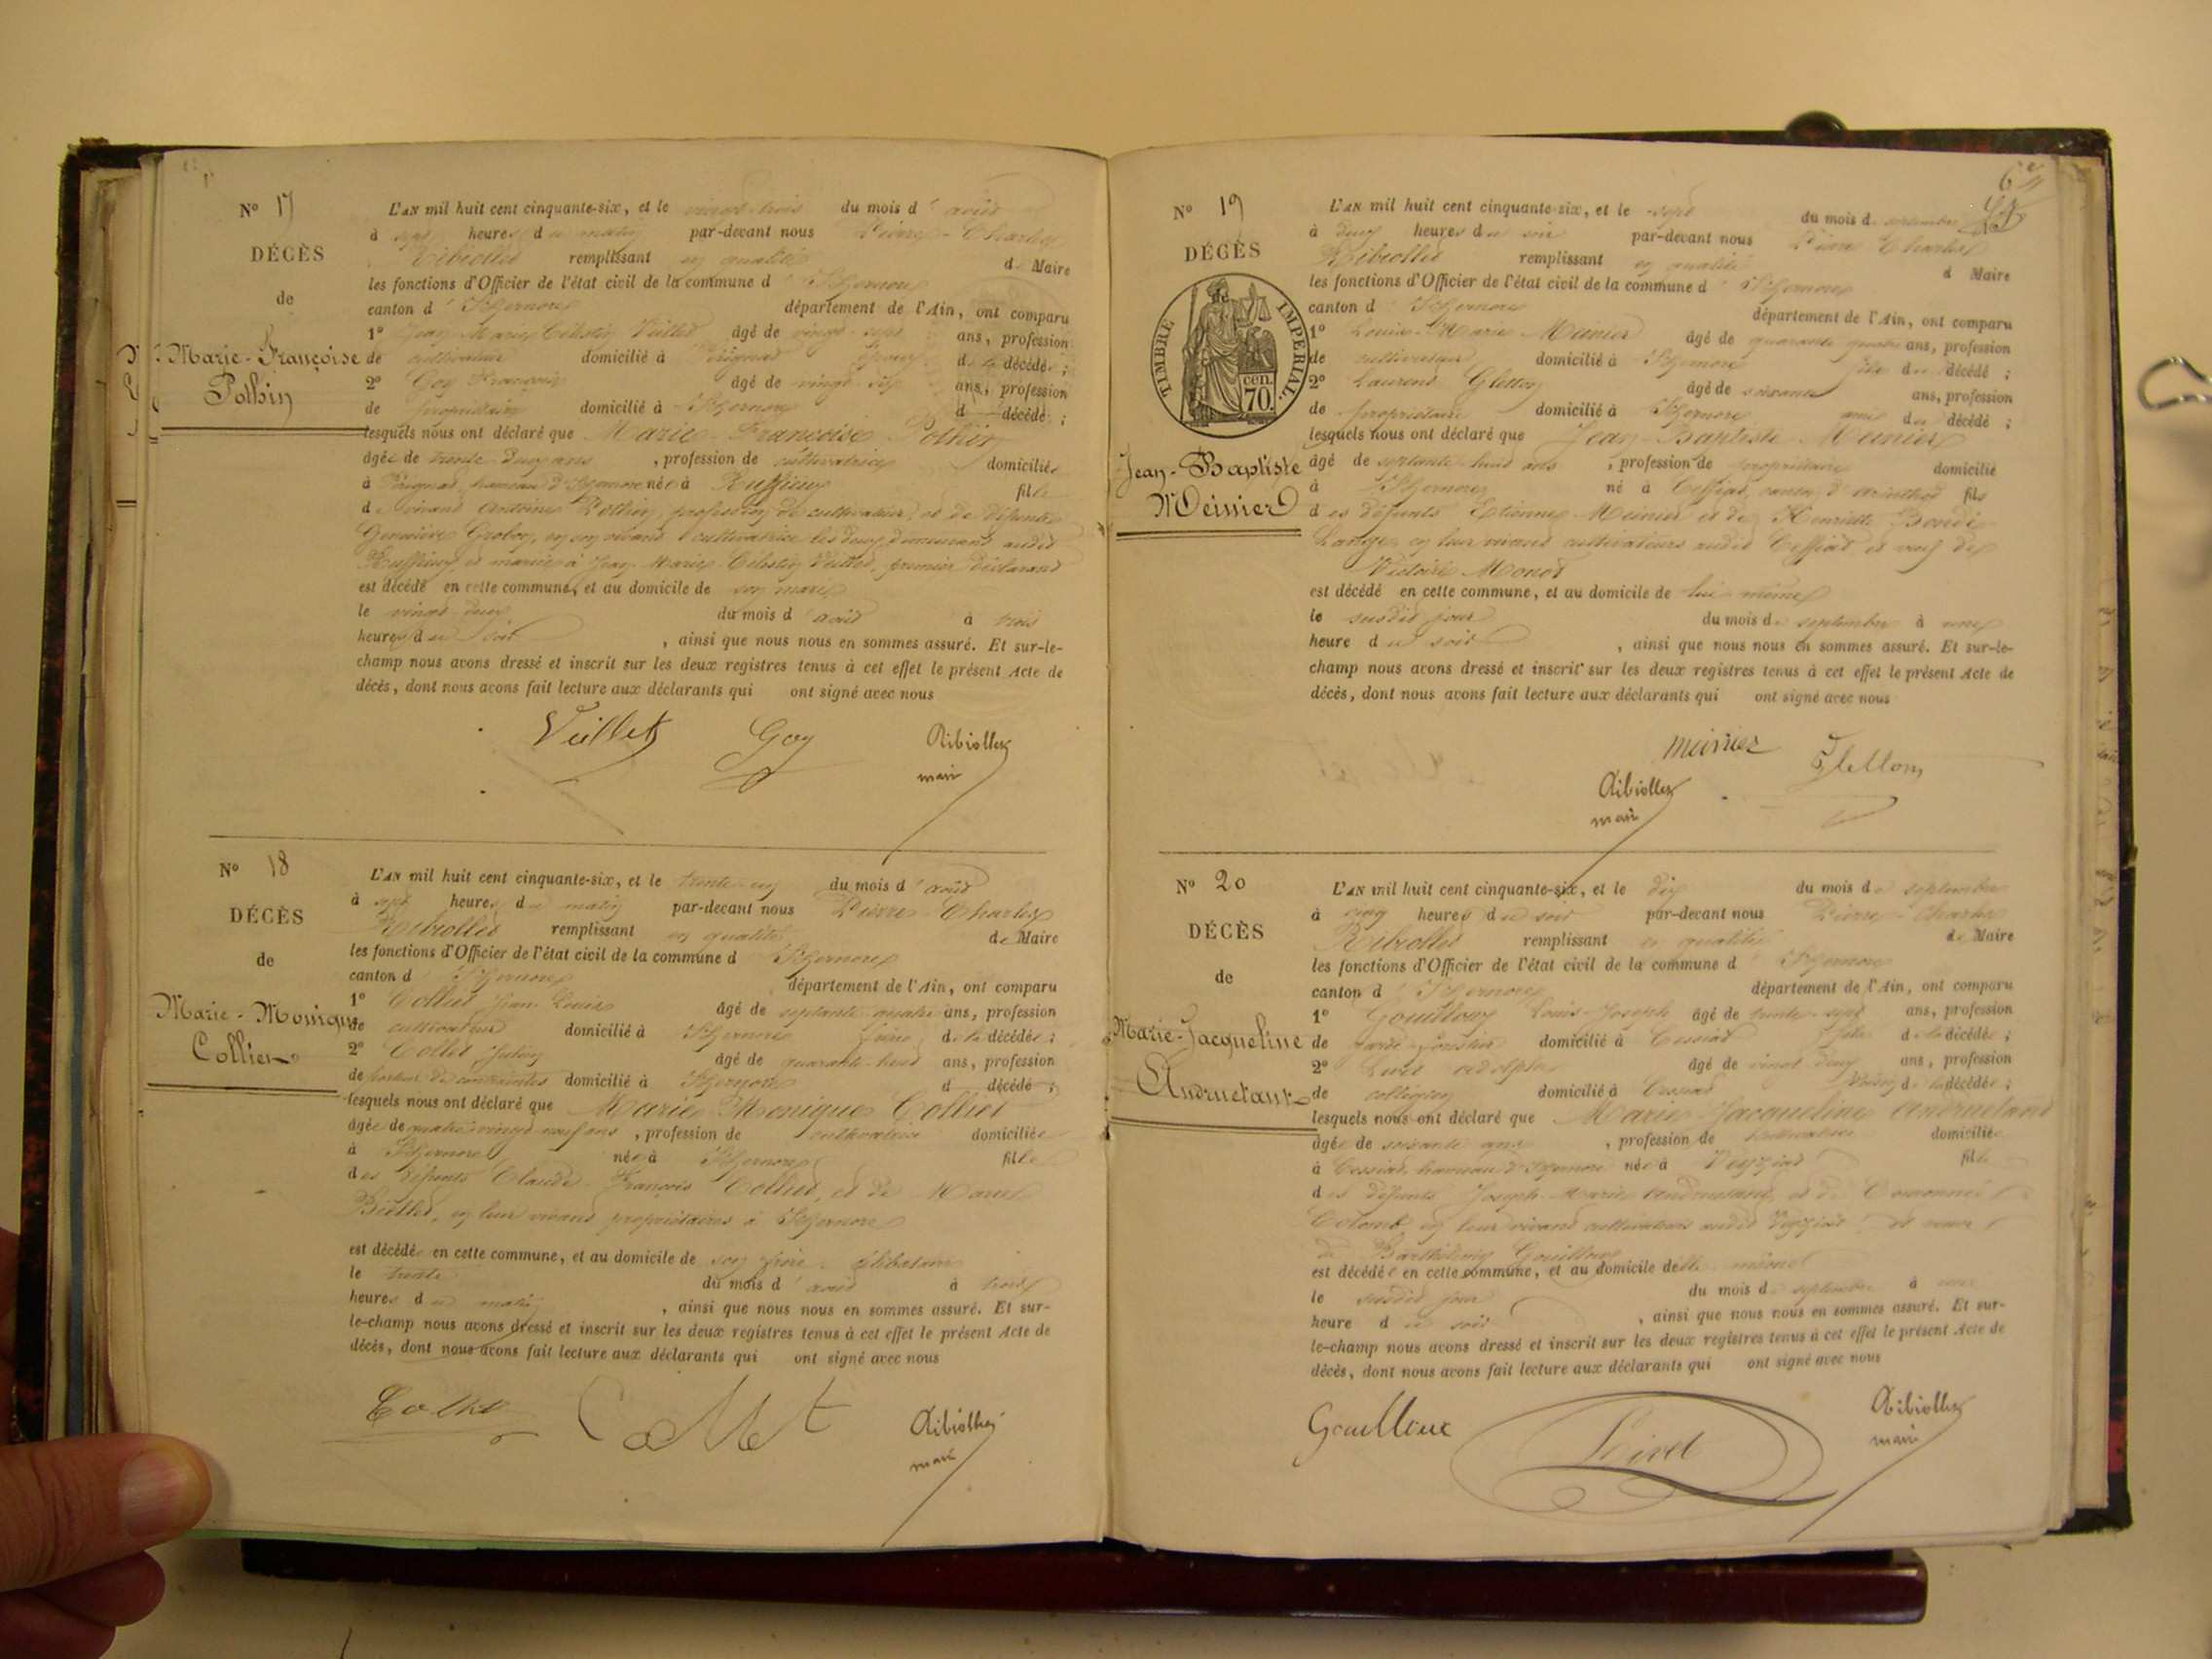 N° 17
DÉCÈS
de
Marie-Françoise
Pothin
L'AN mil huit cent cinquante-six, et le vingt-trois du mois d'août
à sept heures du matin par-devant nous Pierre-Charles
Ribiollet remplissant en qualité de Maire
les fonctions d'Officier de l'état civil de la commune d'Izernore
canton d'Izernore département de l'Ain, ont comparu
1° Jean Marie Célestin Vuillet âgé de vingt-sept ans, profession
de cultivateur domicilié à Pérignat époux de la décédée ;
2° Goy François âgé de vingt-six ans, profession
de propriétaire domicilié à Izernore d décédé ;
lesquels nous ont déclaré que Marie-Françoise Pothin
âgée de trente-deux ans, profession de cultivatrice domiciliée
à Pérignat, hameau d'Izernore née à Ruffieu fille
de vivant Antoine Pothin, profession de cultivateur, et de défunte
Geneviève Grobon, en son vivant cultivatrice les deux demeurant audit
Ruffieu et mariée à Jean Marie Célestin Vuillet, premier déclarant
est décédé en cette commune, et au domicile de son mari
le vingt-deux du mois d'août à trois
heures du soir, ainsi que nous nous en sommes assuré. Et sur-le-
champ nous avons dressé et inscrit sur les deux registres tenus à cet effet le présent Acte de
décès, dont nous avons fait lecture aux déclarants qui ont signé avec nous
Vuillet Goy Ribiollet
maire
N° 18
DÉCÈS
de
Marie-Monique
Colliet
L'AN mil huit cent cinquante-six, et le trente-un du mois d'août
à sept heures du matin par-devant nous Pierre-Charles
Ribiollet remplissant en qualité de Maire
les fonctions d'Officier de l'état civil de la commune d'Izernore
canton d'Izernore département de l'Ain, ont comparu
1° Colliet Jean Louis âgé de septante quatre ans, profession
de cultivateur domicilié à Izernore frère de la décédée ;
2° Collet Julien âgé de quarante-huit ans, profession
de porteur de contraintes domicilié à Izernore d décédé ;
lesquels nous ont déclaré que Marie Monique Colliet
âgée de quatre-vingt-neuf ans, profession de cultivatrice domiciliée
à Izernore née à Izernore fille
des défunts Claude-François Colliet, et de Marie
en leur vivant propriétaires à Izernore
est décédée en cette commune, et au domicile de son frère célibataire
le trente du mois d'août à trois
heures du matin, ainsi que nous nous en sommes assuré. Et sur-
le-champ nous avons dressé et inscrit sur les deux registres tenus à cet effet le présent Acte de
décès, dont nous avons fait lecture aux déclarants qui ont signé avec nous
Colliet Collet Ribiollet
maire
N° 19
DÉCÈS
TIMBRE IMPÉRIAL
70 cen.
Jean-Baptiste
Meinier
L'AN mil huit cent cinquante-six, et le sept du mois de septembre
à deux heures du soir par-devant nous Pierre Charles
Ribiollet remplissant en qualité d Maire
les fonctions d'Officier de l'état civil de la commune d'Izernore
canton d'Izernore département de l'Ain, ont comparu
1° Louis-Marie Meinier âgé de quarante quatre ans, profession
de cultivateur domicilié à Izernore fils du décédé ;
2° Laurent Gletton âgé de soixante ans, profession
de propriétaire domicilié à Izernore ami du décédé ;
lesquels nous ont déclaré que Jean-Baptiste Meinier
âgé de septante-huit ans, profession de propriétaire domicilié
à Izernore né à Ceffiat, canton d'Arinthod fils
des défunts Etienne Meinier et de Henriette
en leur vivant cultivateurs audit Ceffiat et veuf de
Victoire Monod
est décédé en cette commune, et au domicile de lui-même
le susdit jour du mois de septembre à une
heure du soir, ainsi que nous nous en sommes assuré. Et sur-le-
champ nous avons dressé et inscrit sur les deux registres tenus à cet effet le présent Acte de
décès, dont nous avons fait lecture aux déclarants qui ont signé avec nous
Meinier Gletton
Ribiollet
maire
N° 20
DÉCÈS
de
Marie-Jacqueline
Andruetant
L'AN mil huit cent cinquante-six, et le dix du mois de septembre
à cinq heures du soir par-devant nous Pierre-Charles
Ribiollet remplissant en qualité de Maire
les fonctions d'Officier de l'état civil de la commune d'Izernore
canton d'Izernore département de l'Ain, ont comparu
1° Gouilloux Louis-Joseph âgé de trente-sept ans, profession
de garde-forestier domicilié à Cessiat fils de la décédée ;
2° Livet Adolphe âgé de vingt-deux ans, profession
de domicilié à Cessiat voisin de la décédée ;
lesquels nous ont déclaré que Marie Jacqueline Andruetant
âgée de soixante ans, profession de cultivatrice domiciliée
à Cessiat, hameau d'Izernore née à Veyziat fille
des défunts Joseph-Marie Andruetant, et de
Colomb en leur vivant cultivateurs audit Veyziat et veuve
de Barthélemy Gouilloux
est décédée en cette commune, et au domicile d'elle-même
le susdit jour du mois de septembre à une
heure du soir, ainsi que nous nous en sommes assuré. Et sur-
le-champ nous avons dressé et inscrit sur les deux registres tenus à cet effet le présent Acte de
décès, dont nous avons fait lecture aux déclarants qui ont signé avec nous
Gouilloux Livet Ribiollet
maire